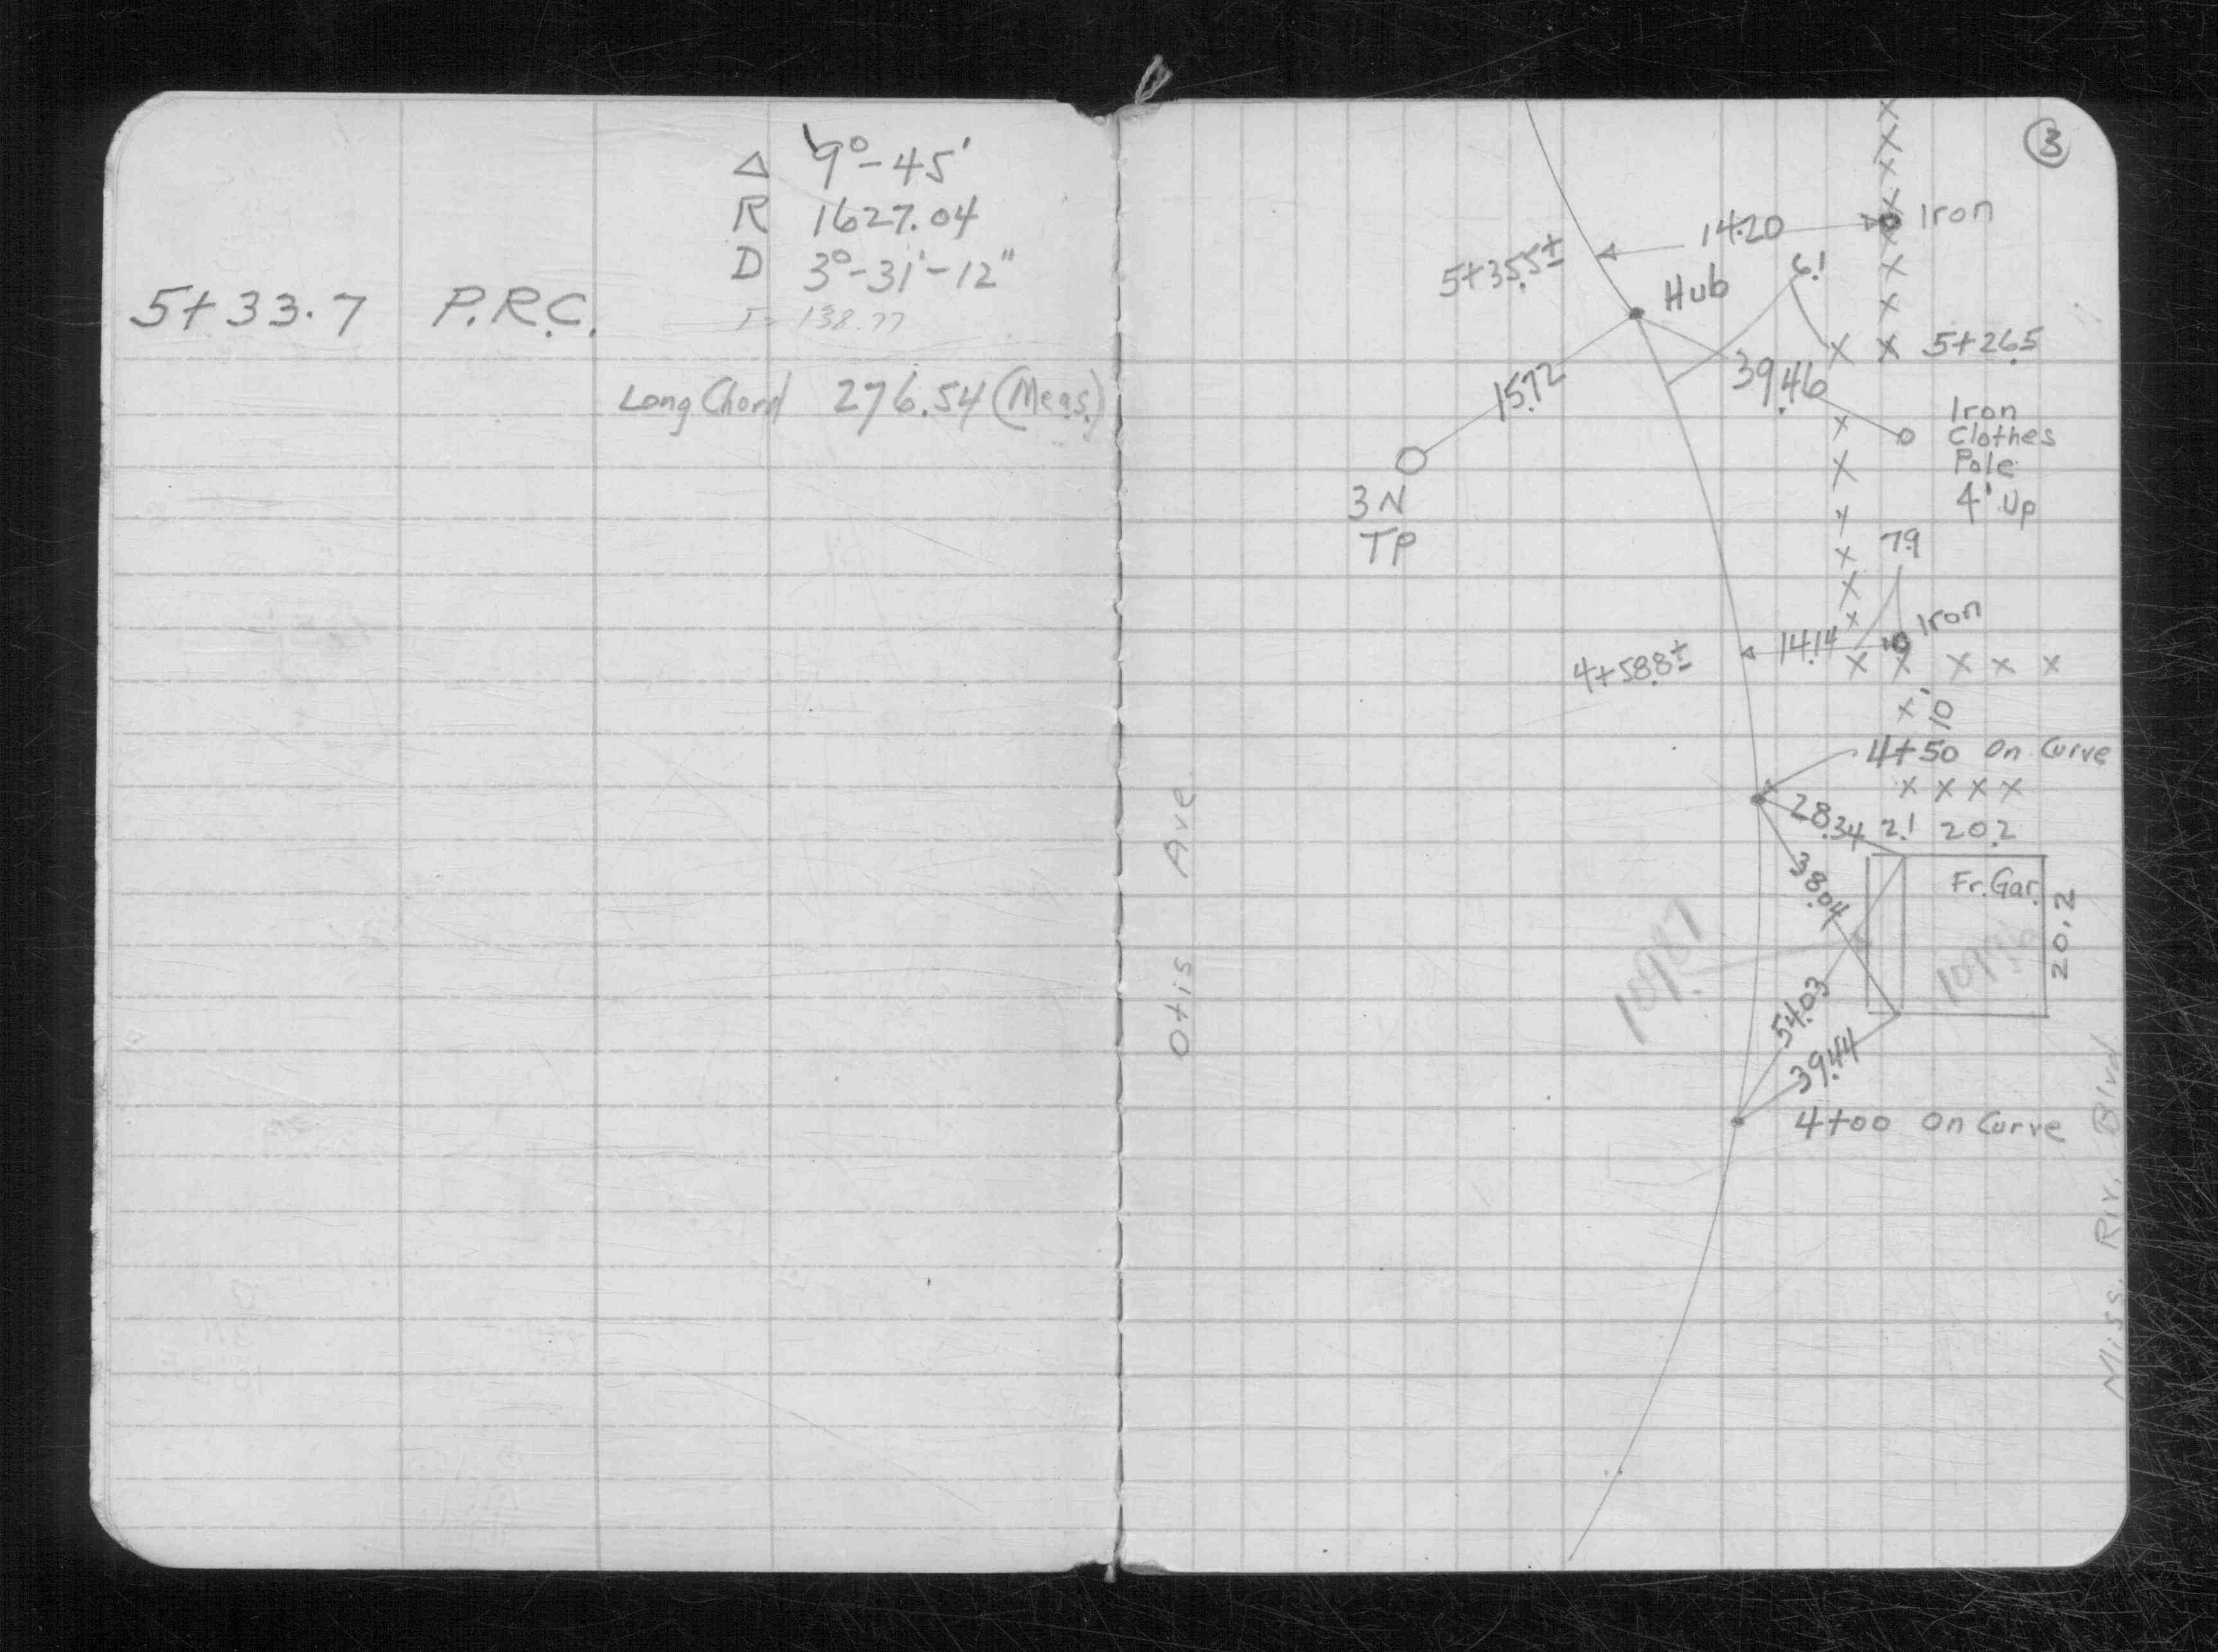 Δ 9°-45'
R 1627.04
D 3°-31'-12"
5+33.7 P.R.C.
T= 138.77
Long Chord 276.54 (Meas.)
3
14.20 Iron
5+35.5±
6.1
Hub
5+26.5
15.72
39.46
Iron
Clothes
Pole
4' Up
3N
TP
7.9
Iron
14.14
4+58.8±
10
4+50 On Curve
28.34 2.1 20.2
38.04
Fr. Gar.
20.2
109.87
54.03
39.44
4+00 On Curve
Otis Ave
Miss. Riv. Blvd